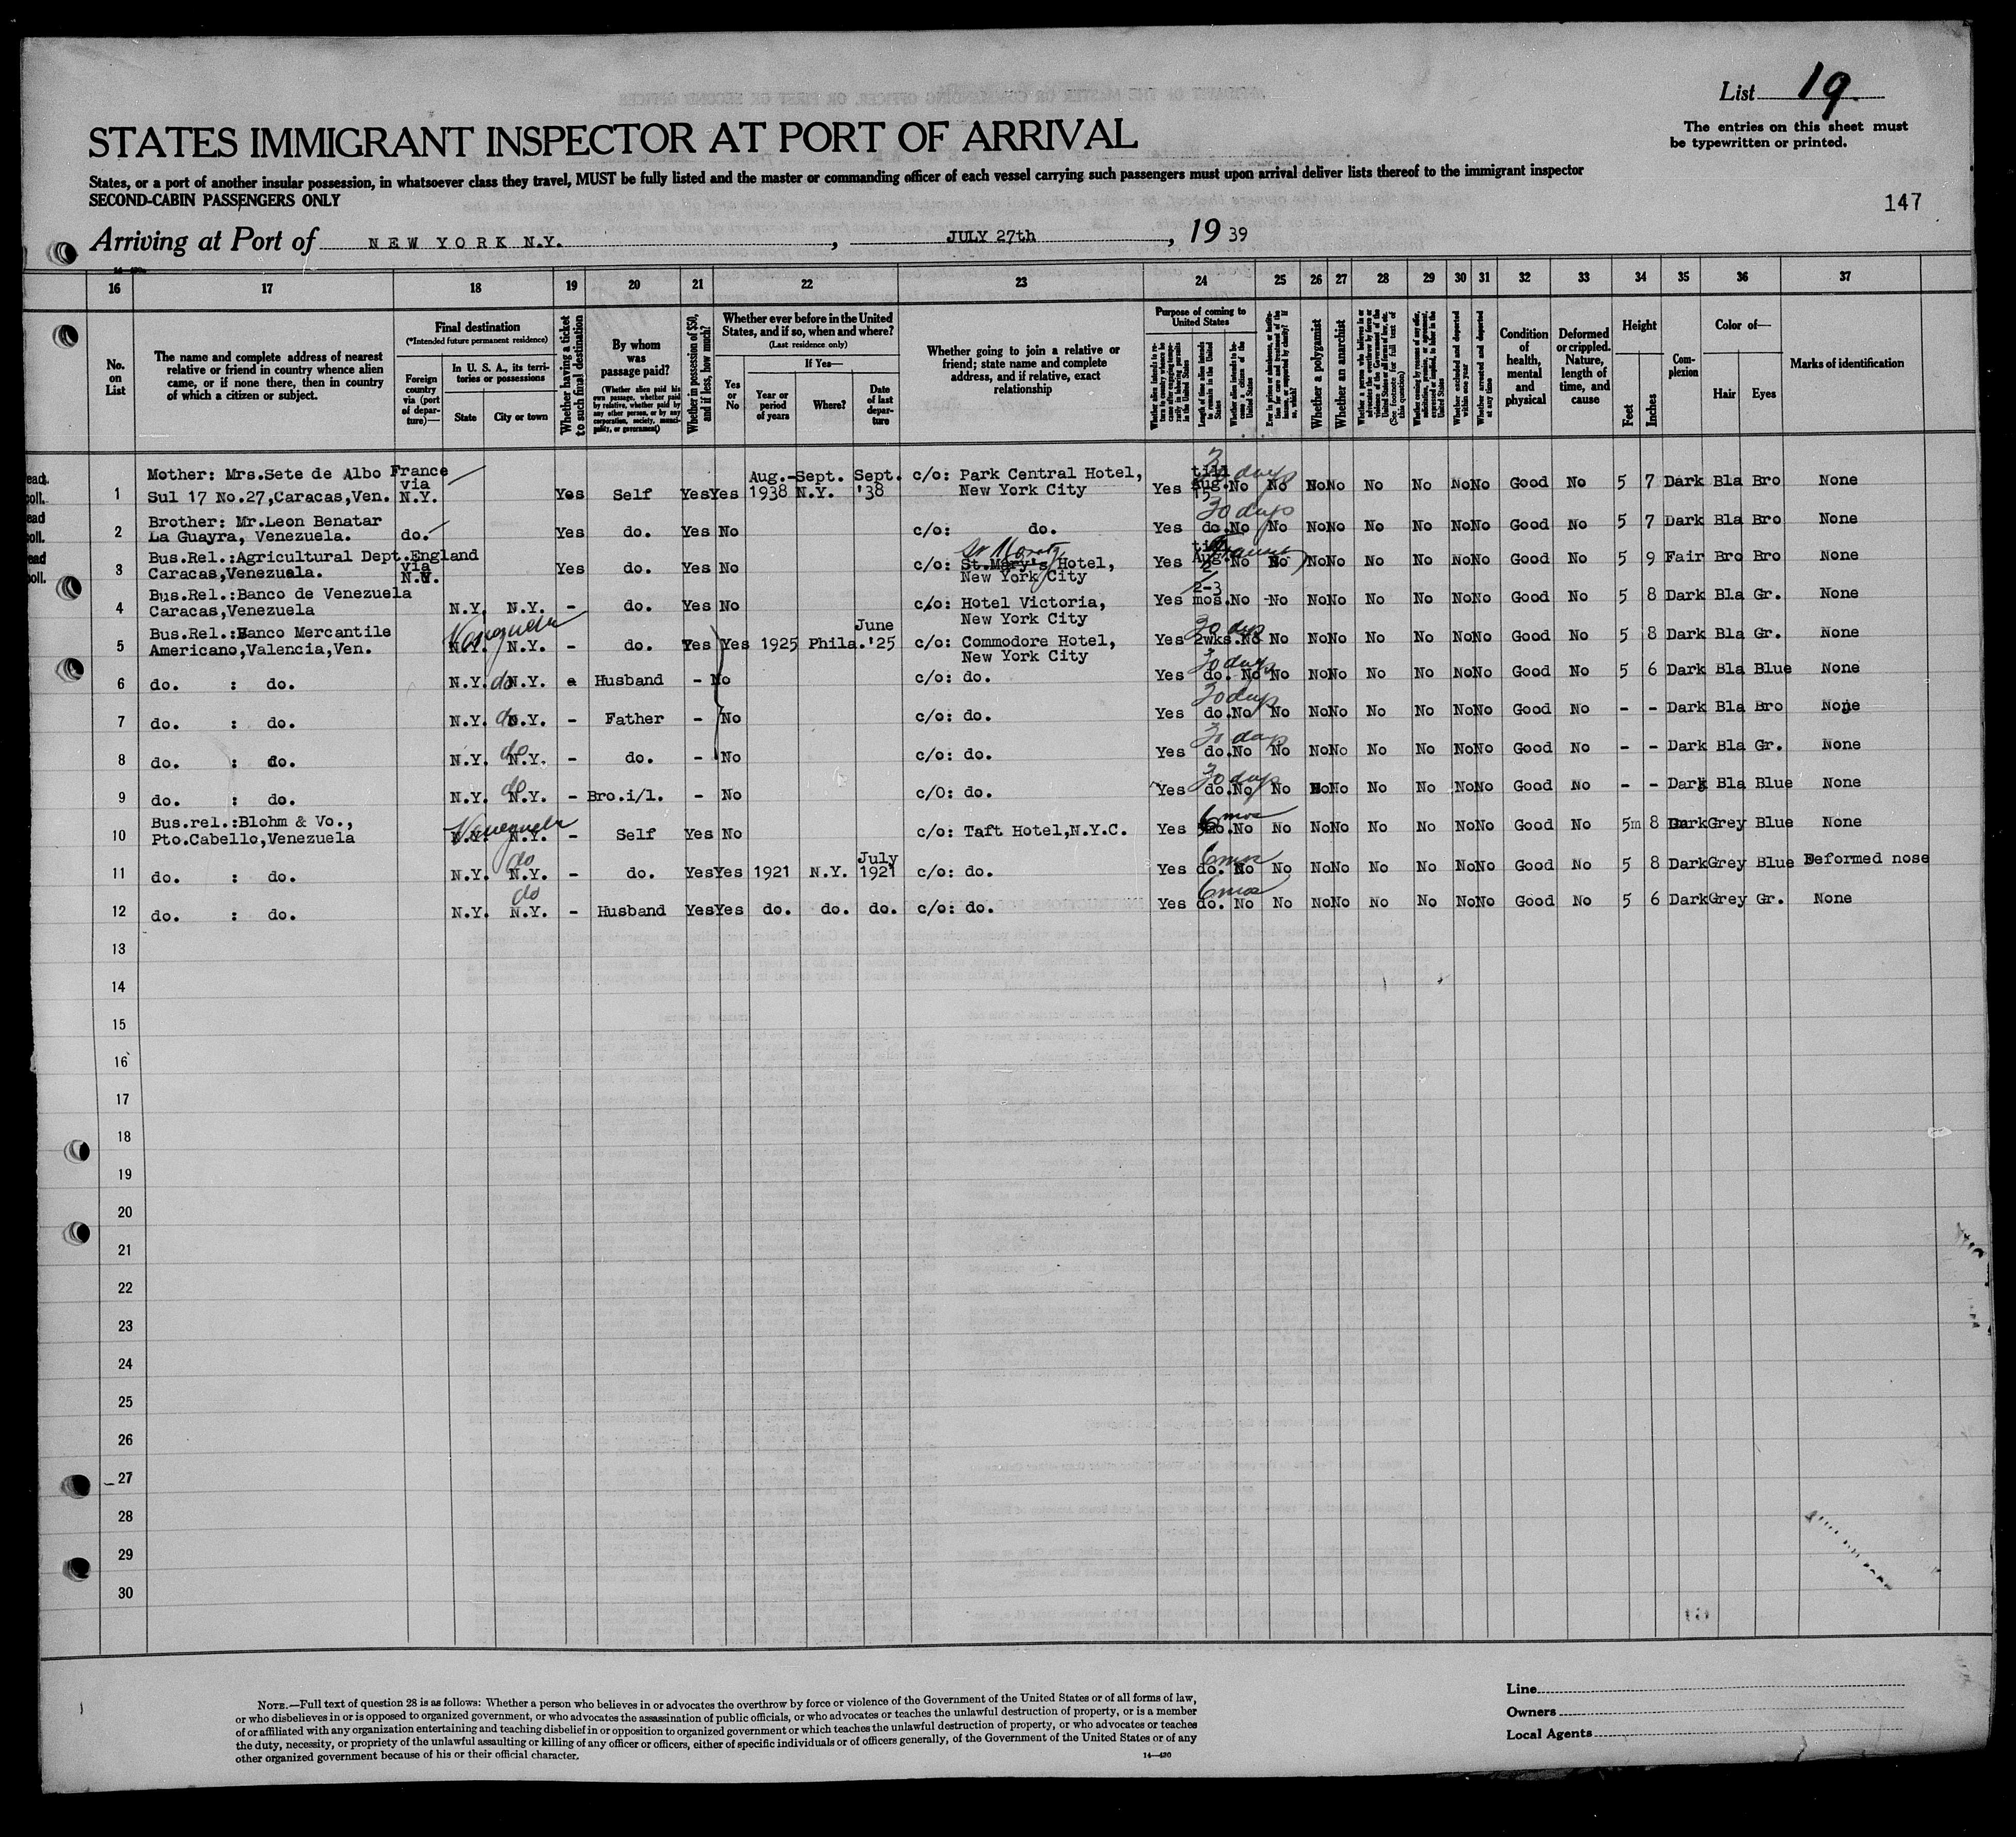 List 19.
The entries on this sheet must
be typewritten or printed.
STATES IMMIGRANT INSPECTOR AT PORT OF ARRIVAL
States, or a port of another insular possession, in whatsoever class they travel, MUST be fully listed and the master or commanding officer of each vessel carrying such passengers must upon arrival deliver lists thereof to the immigrant inspector
SECOND-CABIN PASSENGERS ONLY
147
Arriving at Port of NEW YORK N.Y. , JULY 27th , 1939
16 17 18 19 20 21 22 23 24 25 26 27 28 29 30 31 32 33 34 35 36 37
No. on List
The name and complete address of nearest relative or friend in country whence alien came, or if none there, then in country of which a citizen or subject.
Final destination
(*Intended future permanent residence)
Foreign country via (port of departure)—
In U. S. A., its territories or possessions
State City or town
Whether having a ticket to such final destination
By whom was passage paid?
(Whether alien paid his own passage, whether paid by relative, whether paid by any other person, or by any corporation, society, municipality, or government)
Whether in possession of $50, and if less, how much?
Whether ever before in the United States, and if so, when and where?
(Last residence only)
Yes or No
If Yes—
Year or period of years
Where?
Date of last departure
Whether going to join a relative or friend; state name and complete address, and if relative, exact relationship
Purpose of coming to United States
Length of time alien intends to remain in the United States
Whether alien intends to become a citizen of the United States
Whether a polygamist
Whether an anarchist
Whether excluded and deported within one year
Whether arrested and deported at any time
Condition of health, mental and physical
Deformed or crippled. Nature, length of time, and cause
Height
Feet Inches
Complexion
Color of—
Hair Eyes
Marks of identification
1 Mother: Mrs.Sete de Albo France Aug.-Sept. Sept. c/o: Park Central Hotel, till 30 days
Sul 17 No.27,Caracas,Ven. via N.Y. Yes Self Yes Yes 1938 N.Y. '38 New York City Yes Aug. 15 No No No No No No No No Good No 5 7 Dark Bla Bro None
2 Brother: Mr.Leon Benatar 30 days
La Guayra, Venezuela. do. Yes do. Yes No c/o: do. Yes do. No No No No No No No No Good No 5 7 Dark Bla Bro None
3 Bus.Rel.:Agricultural Dept.England St Moritz till Transit
Caracas,Venezuela. via N.Y. Yes do. Yes No c/o: St.Mary's Hotel, Yes Aug. 2 No No No No No No No No Good No 5 9 Fair Bro Bro None
New York City
4 Bus.Rel.:Banco de Venezuela 2-3
Caracas,Venezuela N.Y. N.Y. - do. Yes No c/o: Hotel Victoria, Yes mos. No No No No No No No No Good No 5 8 Dark Bla Gr. None
New York City
5 Bus.Rel.:Banco Mercantile Venezuela June 30 days
Americano,Valencia,Ven. N.Y. N.Y. - do. Yes Yes 1925 Phila. '25 c/o: Commodore Hotel, Yes 2wks. No No No No No No No No Good No 5 8 Dark Bla Gr. None
New York City
30 days
6 do. : do. N.Y. do N.Y. - Husband - No c/o: do. Yes do. No No No No No No No No Good No 5 6 Dark Bla Blue None
30 days
7 do. : do. N.Y. do N.Y. - Father - No c/o: do. Yes do. No No No No No No No No Good No - - Dark Bla Bro None
30 days
8 do. : do. N.Y. do N.Y. - do. - No c/o: do. Yes do. No No No No No No No No Good No - - Dark Bla Gr. None
30 days
9 do. : do. N.Y. do N.Y. - Bro.i/l. - No c/O: do. Yes do. No No No No No No No No Good No - - Dark Bla Blue None
10 Bus.rel.:Blohm & Vo., Venezuela 6 mos
Pto.Cabello,Venezuela N.Y. N.Y. - Self Yes No c/o: Taft Hotel,N.Y.C. Yes No No No No No No No No Good No 5m 8 Dark Grey Blue None
do July 6 mos
11 do. : do. N.Y. N.Y. - do. Yes Yes 1921 N.Y. 1921 c/o: do. Yes do. No No No No No No No No Good No 5 8 Dark Grey Blue Deformed nose
do 6 mos
12 do. : do. N.Y. N.Y. - Husband Yes Yes do. do. do. c/o: do. Yes do. No No No No No No No No Good No 5 6 Dark Grey Gr. None
13
14
15
16
17
18
19
20
21
22
23
24
25
26
27
28
29
30
NOTE.—Full text of question 28 is as follows: Whether a person who believes in or advocates the overthrow by force or violence of the Government of the United States or of all forms of law,
or who disbelieves in or is opposed to organized government, or who advocates the assassination of public officials, or who advocates or teaches the unlawful destruction of property, or is a member
of or affiliated with any organization entertaining and teaching disbelief in or opposition to organized government or which teaches the unlawful destruction of property, or who advocates or teaches
the duty, necessity, or propriety of the unlawful assaulting or killing of any officer or officers, either of specific individuals or of officers generally, of the Government of the United States or of any
other organized government because of his or their official character.
14—430
Line
Owners
Local Agents